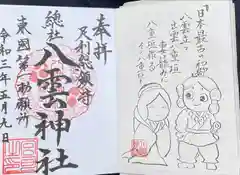 奉拝
足利總鎮守
總社
八雲神社
東國第一勅願所
令和三年五月九日
日本最古の和歌
八雲立つ
出雲八重垣
妻籠みに
八重垣作る
その八重垣を